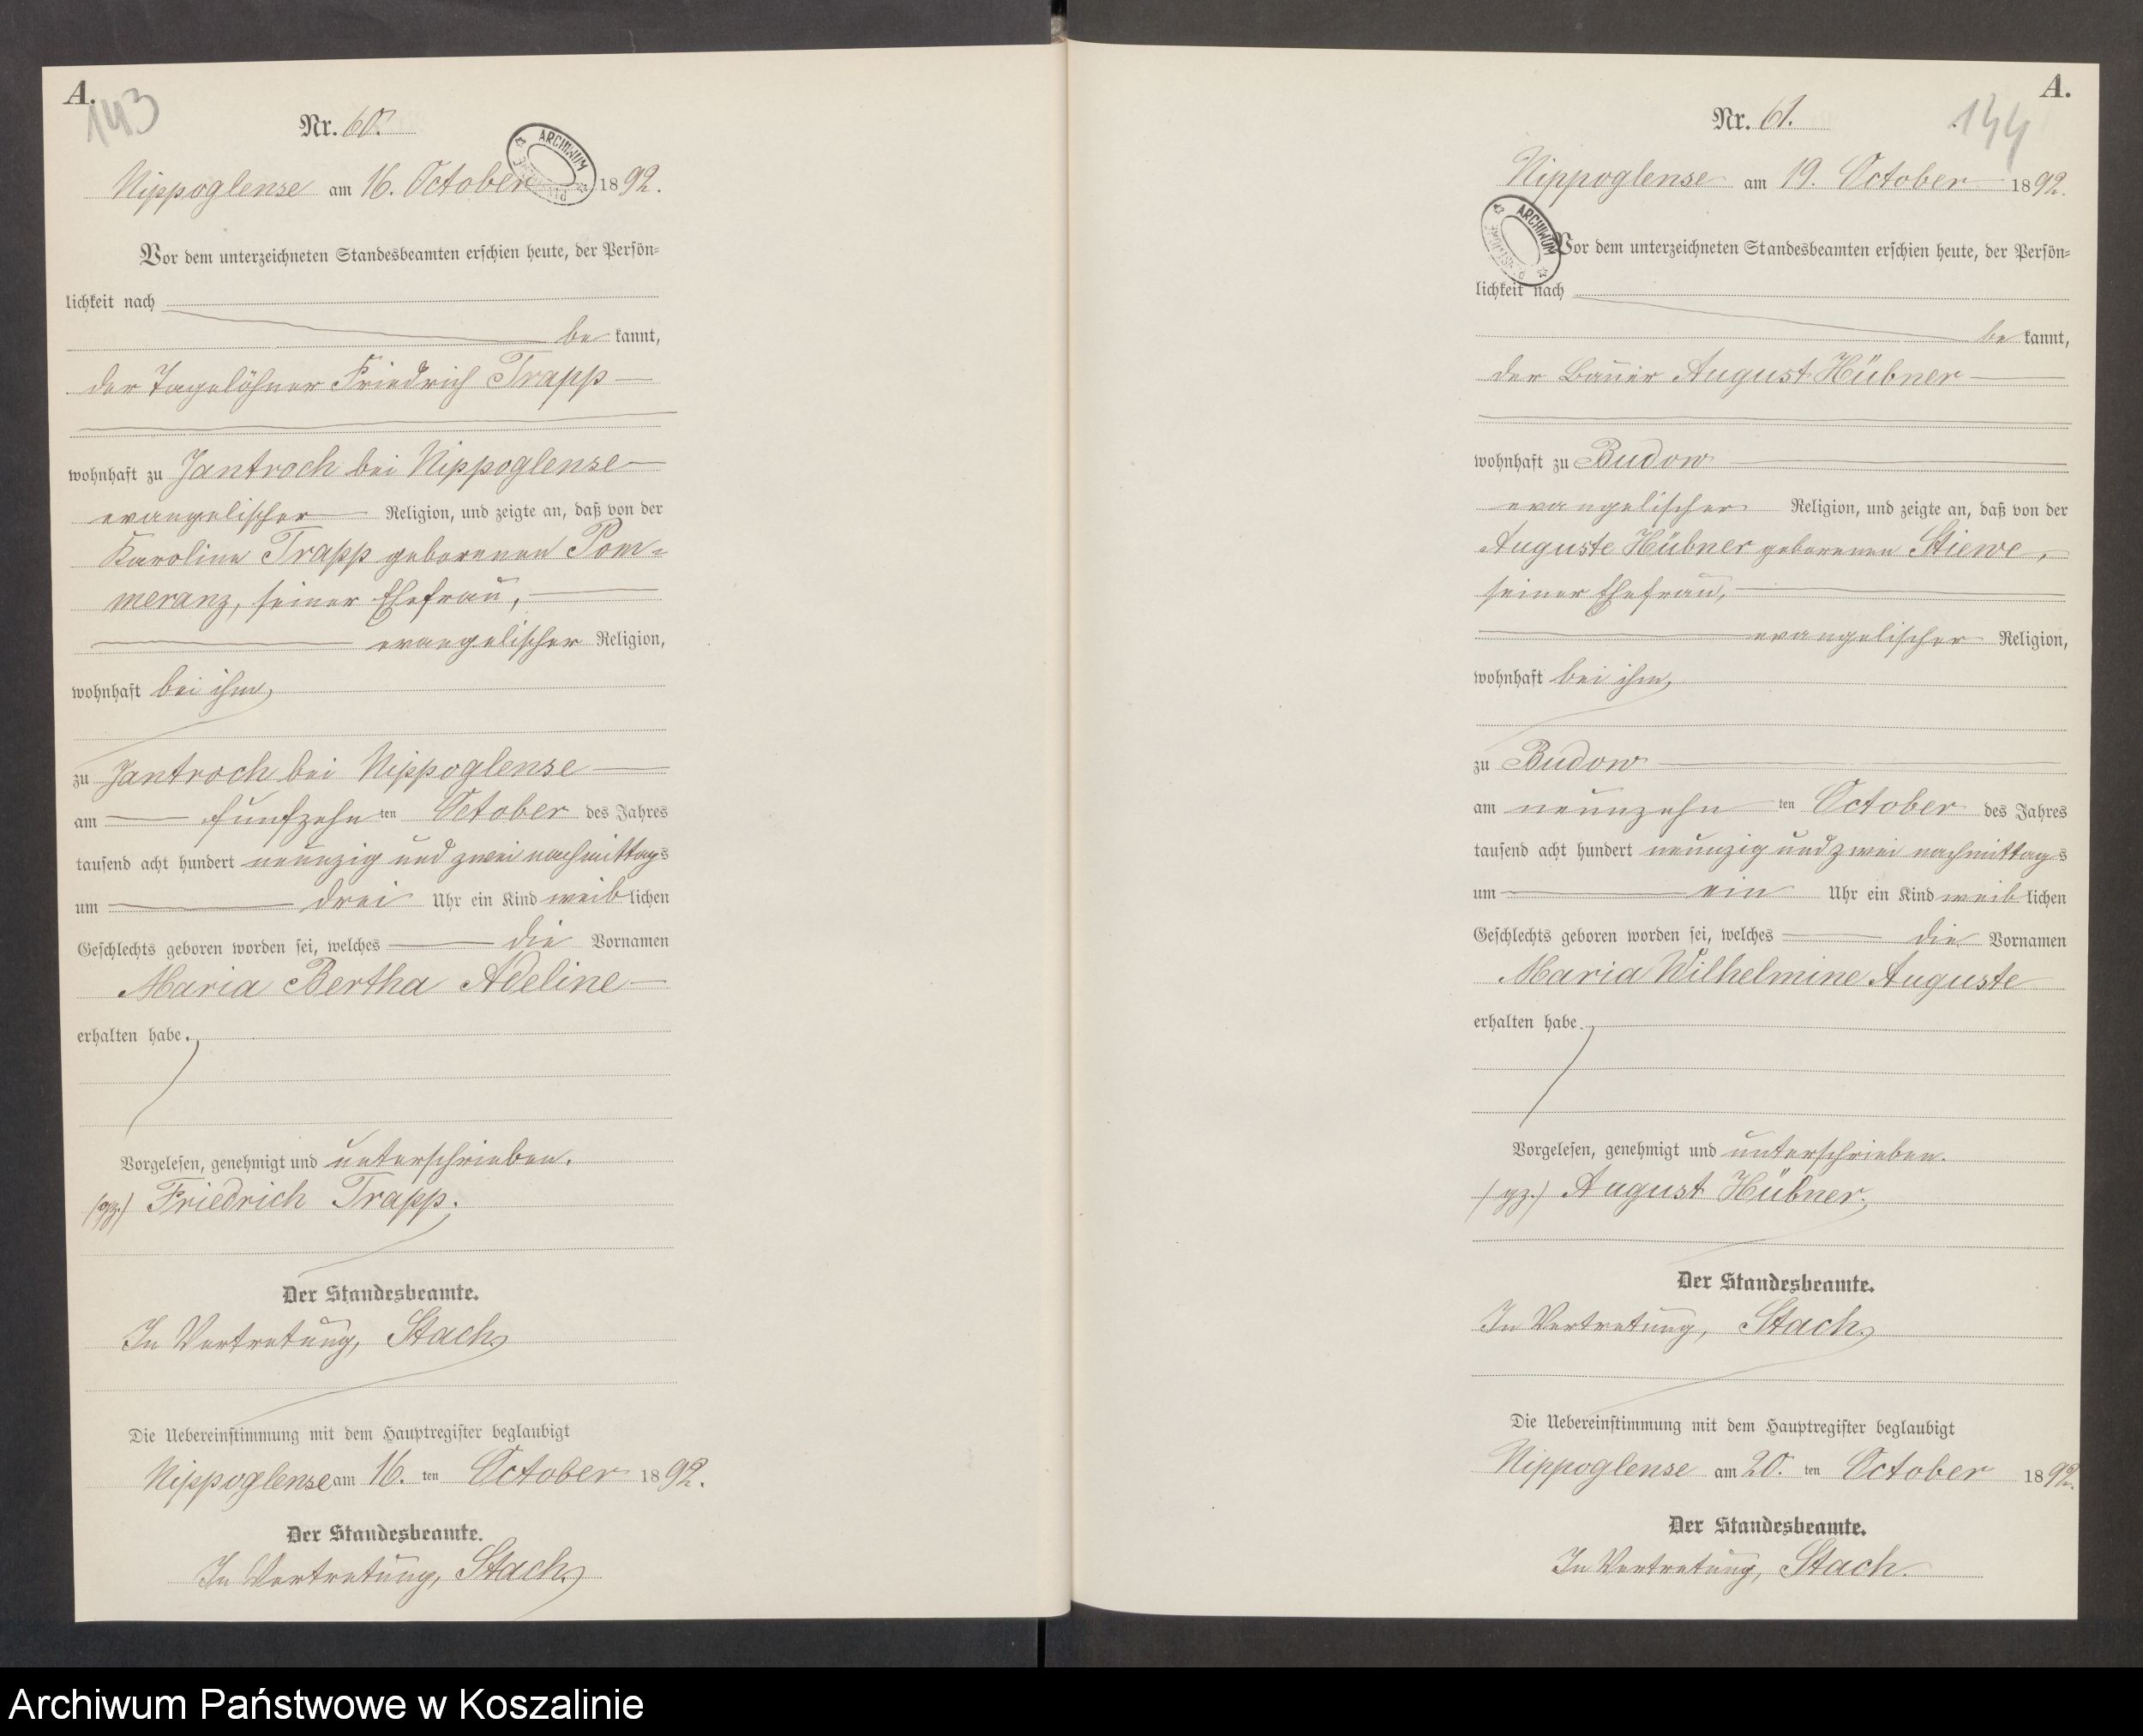 A.
143
Nr. 60.
ARCHIWUM
Nippoglense am 16. October 1892.
Vor dem unterzeichneten Standesbeamten erschien heute, der Persön=
lichkeit nach
be kannt,
der Tagelöhner Friedrich Trapp
wohnhaft zu Jantroch bei Nippoglense
evangelischer Religion, und zeigte an, daß von der
Karoline Trapp geborenen Pom=
meranz, seiner Ehefrau,
evangelischer Religion,
wohnhaft bei ihm,
zu Jantroch bei Nippoglense
am fünfzehn ten October des Jahres
tausend acht hundert neunzig und zwei nachmittags
um drei Uhr ein Kind weiblichen
Geschlechts geboren worden sei, welches die Vornamen
Maria Bertha Adeline
erhalten habe.
Vorgelesen, genehmigt und unterschrieben.
(gz.) Friedrich Trapp.
Der Standesbeamte.
In Vertretung, Stach.
Die Uebereinstimmung mit dem Hauptregister beglaubigt
Nippoglense am 16. ten October 1892.
Der Standesbeamte.
In Vertretung, Stach.
A.
144
Nr. 61.
Nippoglense am 19. October 1892.
ARCHIWUM
Vor dem unterzeichneten Standesbeamten erschien heute, der Persön=
lichkeit nach
be kannt,
der Bauer August Hübner
wohnhaft zu Budow
evangelischer Religion, und zeigte an, daß von der
Auguste Hübner geborenen Stiewe,
seiner Ehefrau,
evangelischer Religion,
wohnhaft bei ihm,
zu Budow
am neunzehn ten October des Jahres
tausend acht hundert neunzig und zwei nachmittags
um ein Uhr ein Kind weiblichen
Geschlechts geboren worden sei, welches die Vornamen
Maria Wilhelmine Auguste
erhalten habe.
Vorgelesen, genehmigt und unterschrieben.
(gz.) August Hübner.
Der Standesbeamte.
In Vertretung, Stach.
Die Uebereinstimmung mit dem Hauptregister beglaubigt
Nippoglense am 20. ten October 1892.
Der Standesbeamte.
In Vertretung, Stach.
Archiwum Państwowe w Koszalinie